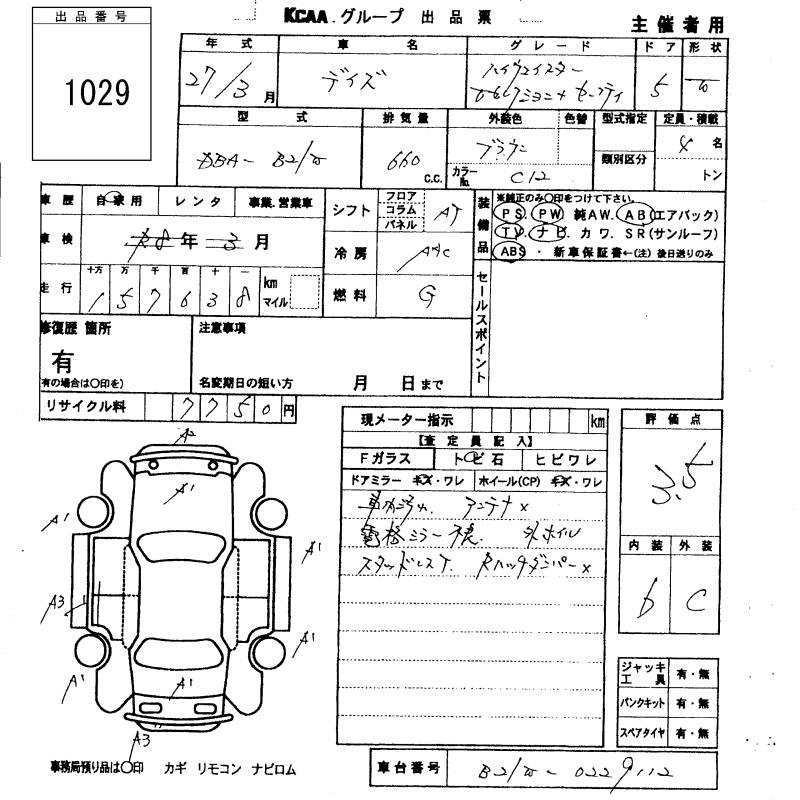 出品番号
1029
KCAA.グループ 出品票
主催者用
年式 車名 グレード ドア 形状
27/3月 デイズ ハイウェイスター 5
型式 排気量 外装色 色替 型式指定 定員・積載
DBA- B21W 660 c.c. ブラウン 類別区分 4名
カラーNo. C12 トン
車歴 自家用 レンタ 事業・営業車
シフト フロア コラム パネル AT
装備品 ※純正のみ○印をつけて下さい。
PS. PW 純AW. AB(エアバック)
TV. ナビ. カワ. SR(サンルーフ)
ABS. 新車保証書←(注) 後日送りのみ
車検 年 3月
冷房 AAC
走行 十万 万 千 百 十 一 km マイル
157638
燃料 G
セールスポイント
修復歴 箇所 有 (有の場合は○印を)
注意事項
名変期日の短い方 月 日まで
リサイクル料 7750円
現メーター指示 km
【査定員記入】
Fガラス トビ石 ヒビワレ
ドアミラー キズ・ワレ ホイール(CP) キズ・ワレ
車内汚れ. アンテナ×
電格ミラー 社外ホイル
スタッドレスT. Rハッチダンパー×
評価点
3.5
内装 外装
D C
ジャッキ工具 有・無
パンクキット 有・無
スペアタイヤ 有・無
A2
A1
A1
A1
A1
A3
A1
A1
A1
A3
事務局預り品は○印 カギ リモコン ナビロム
車台番号 B21W-0229112